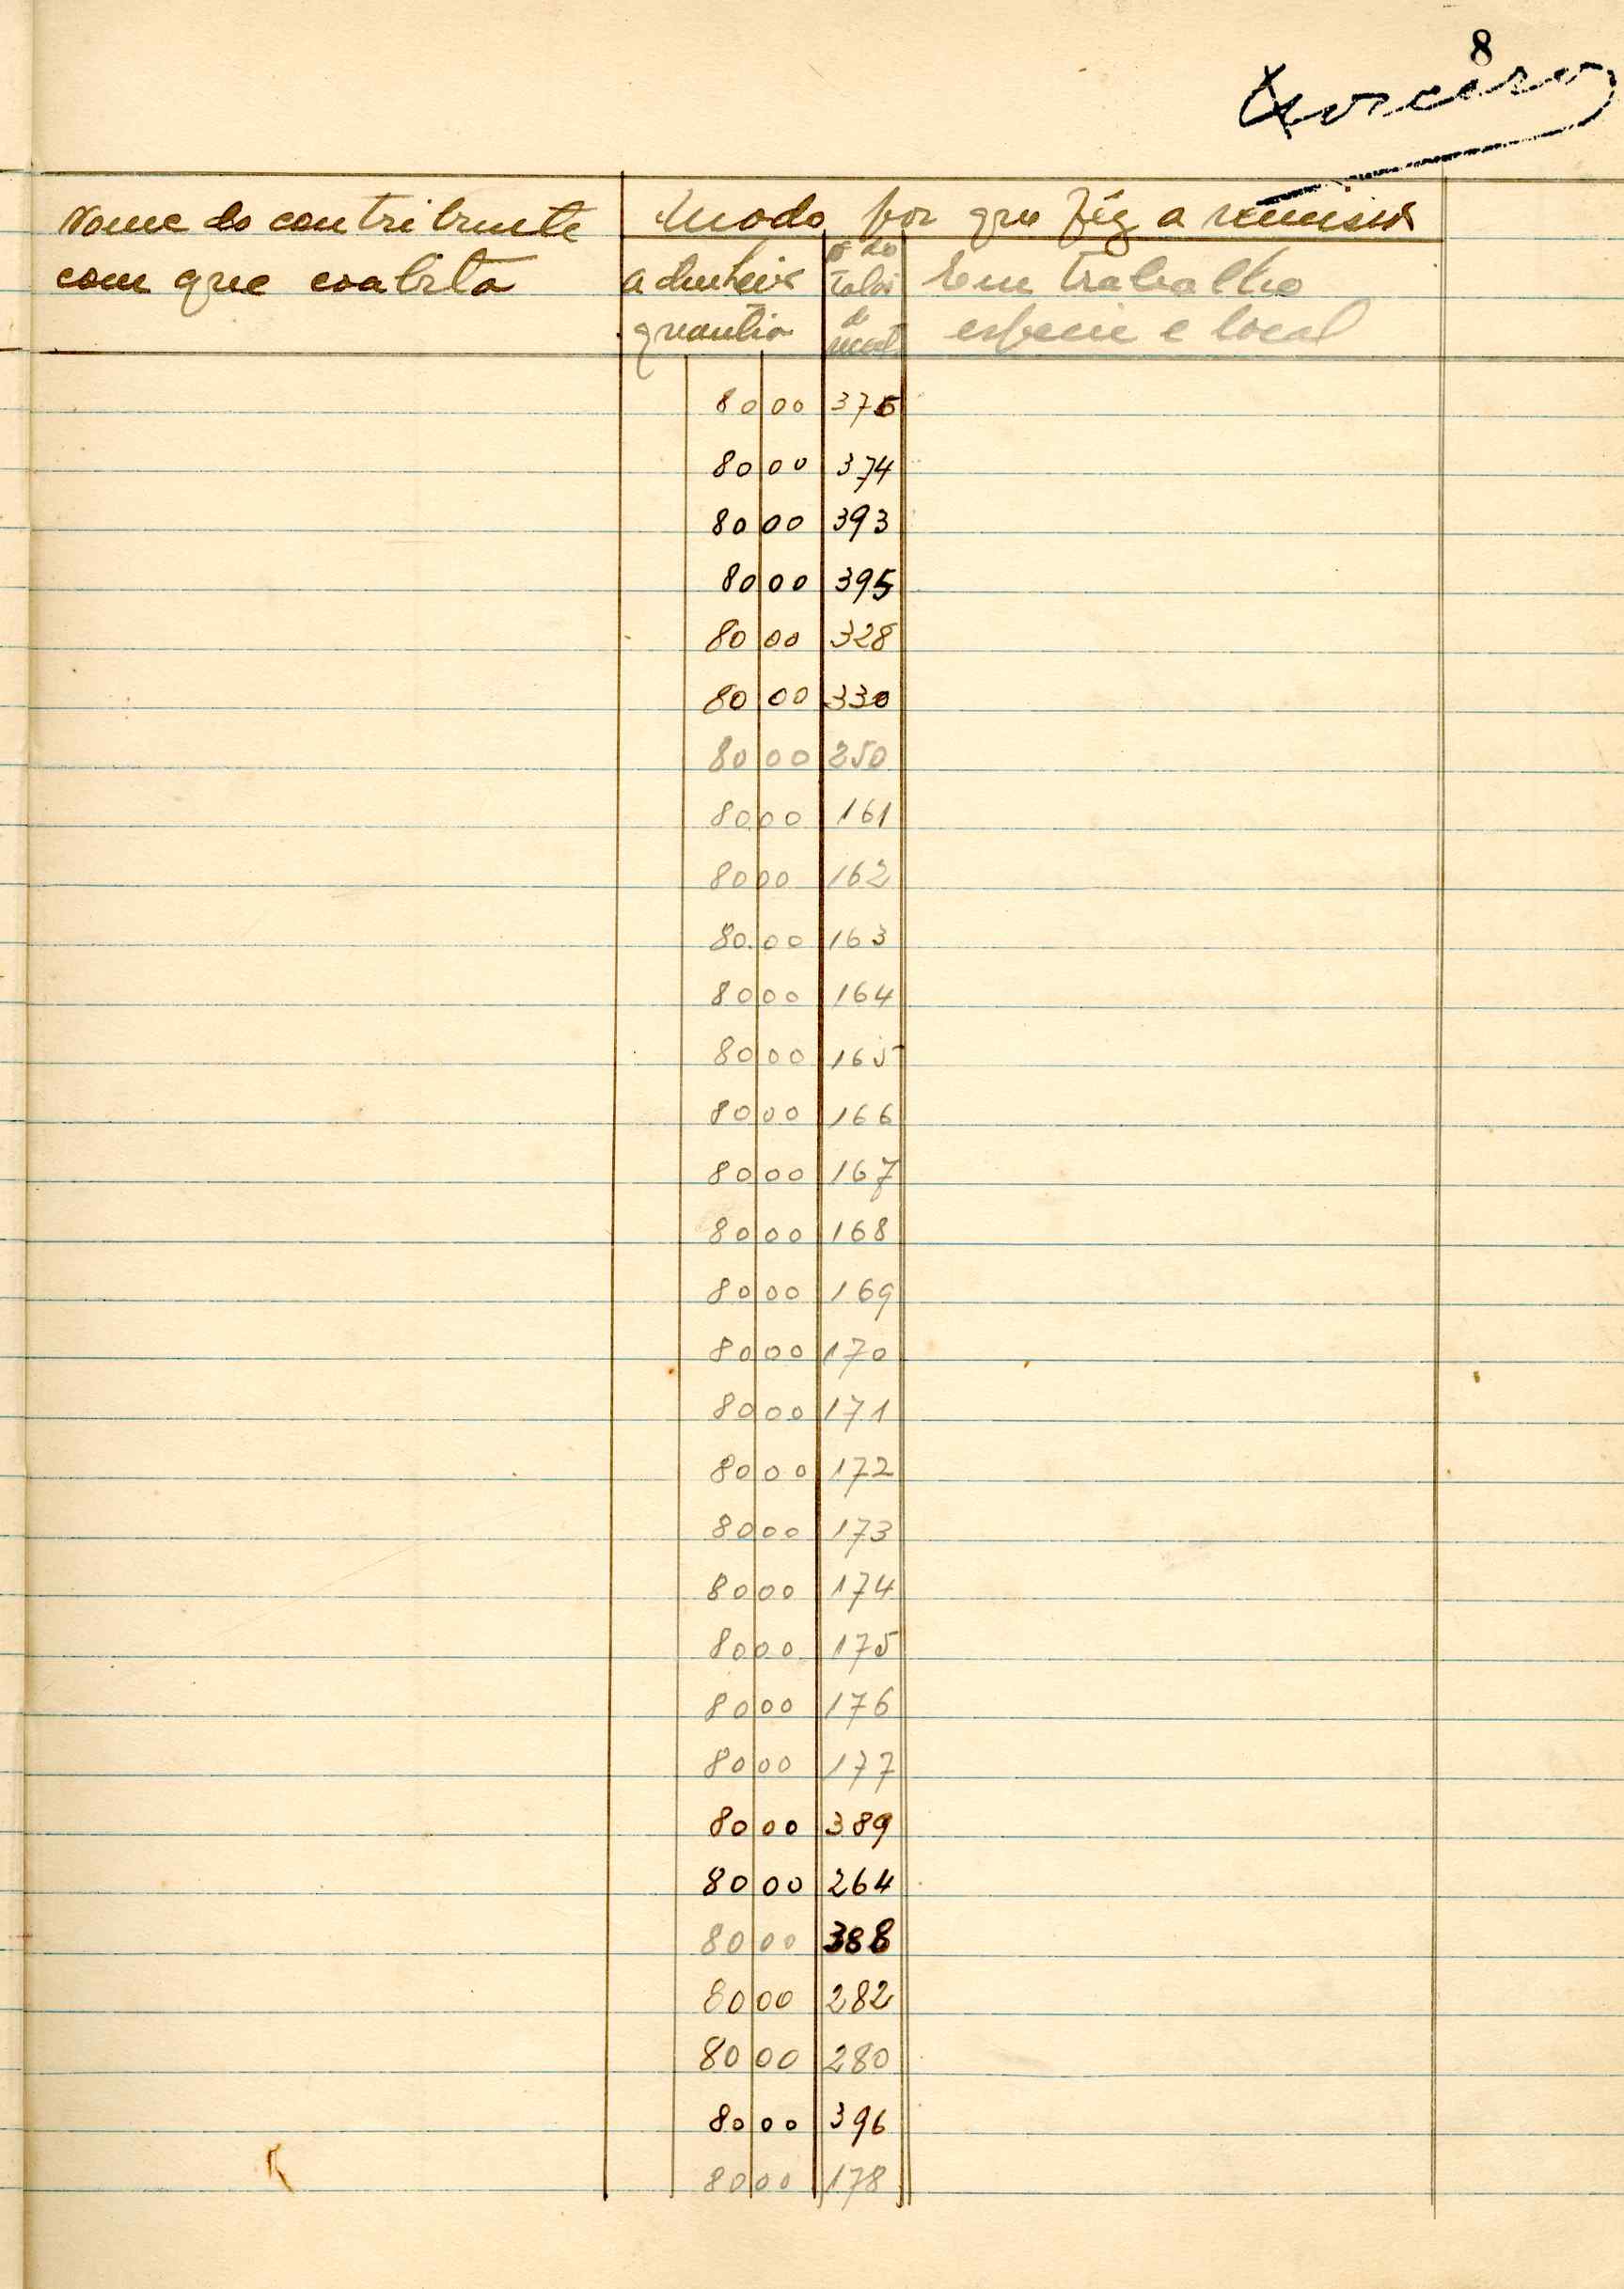 8
Nome do contribuinte
com que coabita
Modo por que fêz a remissão
a dinheiro
quantia
nº do
talão
de
Em trabalho
especie e local
80 00 375
80 00 374
80 00 393
80 00 395
80 00 328
80 00 330
80 00 250
80 00 161
80 00 162
80 00 163
80 00 164
80 00 165
80 00 166
80 00 167
80 00 168
80 00 169
80 00 170
80 00 171
80 00 172
80 00 173
80 00 174
80 00 175
80 00 176
80 00 177
80 00 389
80 00 264
80 00 388
80 00 282
80 00 280
80 00 396
80 00 178